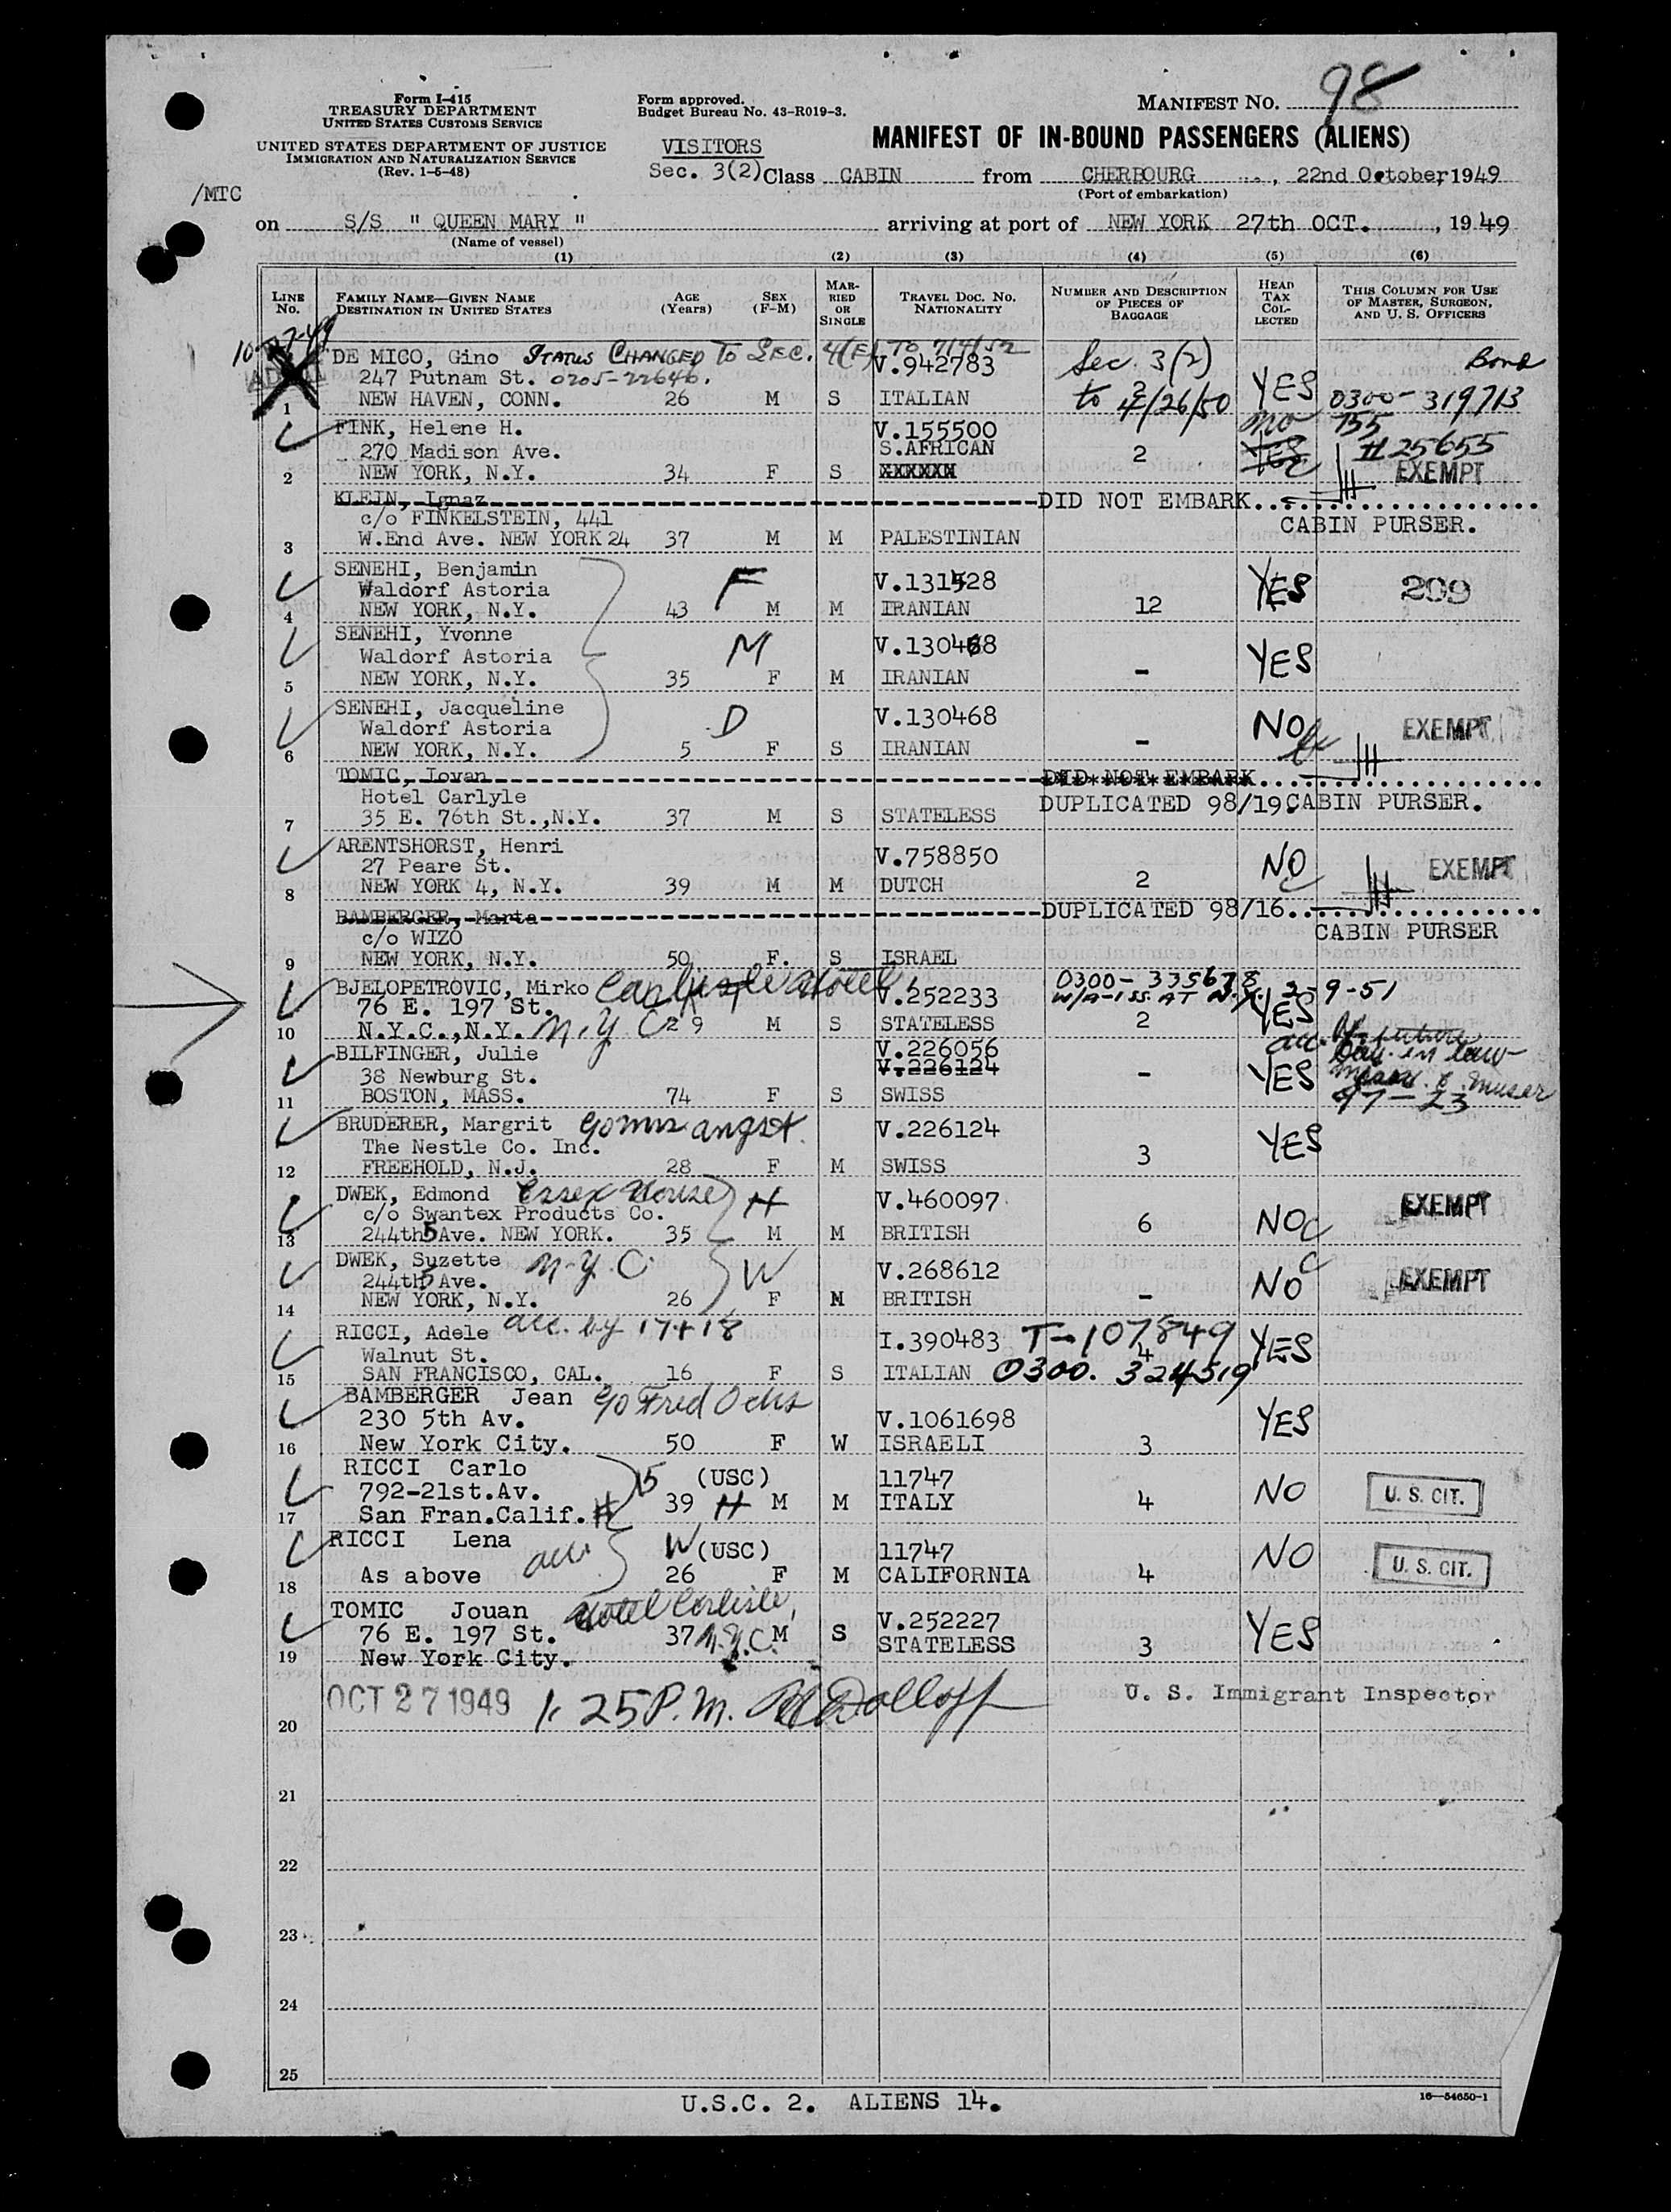 Form I-415
TREASURY DEPARTMENT
UNITED STATES CUSTOMS SERVICE
UNITED STATES DEPARTMENT OF JUSTICE
IMMIGRATION AND NATURALIZATION SERVICE
(Rev. 1-5-48)
Form approved.
Budget Bureau No. 43-R019-3.
MANIFEST NO. 98
MANIFEST OF IN-BOUND PASSENGERS (ALIENS)
VISITORS
Sec. 3(2) Class CABIN from CHERBOURG, 22nd October, 1949
(Port of embarkation)
/MTC
on S/S " QUEEN MARY " arriving at port of NEW YORK 27th OCT., 1949
(Name of vessel)
(1) (2) (3) (4) (5) (6)
LINE No. FAMILY NAME—GIVEN NAME DESTINATION IN UNITED STATES AGE (Years) SEX (F-M) MARRIED OR SINGLE TRAVEL DOC. NO. NATIONALITY NUMBER AND DESCRIPTION OF PIECES OF BAGGAGE HEAD TAX COLLECTED THIS COLUMN FOR USE OF MASTER, SURGEON, AND U. S. OFFICERS
DE MICO, Gino STATUS CHANGED TO SEC. 4(E) TO 7/4/52 V.942783 Sec. 3(2) Bond
247 Putnam St. 0205-22646. 2 YES
1 NEW HAVEN, CONN. 26 M S ITALIAN to 4/26/50 0300-319713
FINK, Helene H. V.155500 no 755
270 Madison Ave. S.AFRICAN 2 YES #25655
2 NEW YORK, N.Y. 34 F S XXXXXX EXEMPT
KLEIN, Ignaz DID NOT EMBARK
c/o FINKELSTEIN, 441 CABIN PURSER.
3 W.End Ave. NEW YORK 24 37 M M PALESTINIAN
SENEHI, Benjamin F V.131528 YES 209
Waldorf Astoria
4 NEW YORK, N.Y. 43 M M IRANIAN 12
SENEHI, Yvonne M V.130468 YES
Waldorf Astoria
5 NEW YORK, N.Y. 35 F M IRANIAN -
SENEHI, Jacqueline D V.130468 NO EXEMPT
Waldorf Astoria
6 NEW YORK, N.Y. 5 F S IRANIAN -
TOMIC, Iovan DID NOT EMBARK
Hotel Carlyle DUPLICATED 98/19. CABIN PURSER.
7 35 E. 76th St.,N.Y. 37 M S STATELESS
ARENTSHORST, Henri V.758850 NO EXEMPT
27 Peare St.
8 NEW YORK 4, N.Y. 39 M M DUTCH 2
BAMBERGER, Marta DUPLICATED 98/16
c/o WIZO CABIN PURSER
9 NEW YORK, N.Y. 50 F. S ISRAEL
BJELOPETROVIC, Mirko Carlisle Hotel, V.252233 0300-335678 2-9-51
76 E. 197 St. W/A-1 SS. AT N.Y. YES
10 N.Y.C.,N.Y. N.Y.C 29 M S STATELESS 2
BILFINGER, Julie V.226056 acc. by future
38 Newburg St. V.226124 - YES Dau. in law
11 BOSTON, MASS. 74 F S SWISS 97-23
BRUDERER, Margrit V.226124 YES
The Nestle Co. Inc.
12 FREEHOLD, N.J. 28 F M SWISS 3
DWEK, Edmond Essex House H V.460097 EXEMPT
c/o Swantex Products Co. 6 NO
13 244th 5 Ave. NEW YORK. 35 M M BRITISH
DWEK, Suzette N.Y.C. W V.268612 NO EXEMPT
244th 5 Ave.
14 NEW YORK, N.Y. 26 F M BRITISH -
RICCI, Adele acc. by 17+18 I.390483 T-107849 YES
Walnut St. 4
15 SAN FRANCISCO, CAL. 16 F S ITALIAN 0300. 324519
BAMBERGER Jean c/o Fred Ochs V.1061698 YES
230 5th Av.
16 New York City. 50 F W ISRAELI 3
RICCI Carlo 15 (USC) 11747 NO U. S. CIT.
792-21st.Av.
17 San Fran.Calif. H 39 H M M ITALY 4
RICCI Lena acc. W (USC) 11747 NO U. S. CIT.
18 As above 26 F M CALIFORNIA 4
TOMIC Jouan Hotel Carlisle, V.252227 YES
76 E. 197 St. 37 N.Y.C. M S STATELESS 3
19 New York City.
OCT 27 1949 1:25 P.M. Dolloff U. S. Immigrant Inspector
20
21
22
23
24
25
U.S.C. 2. ALIENS 14.
16—54650-1